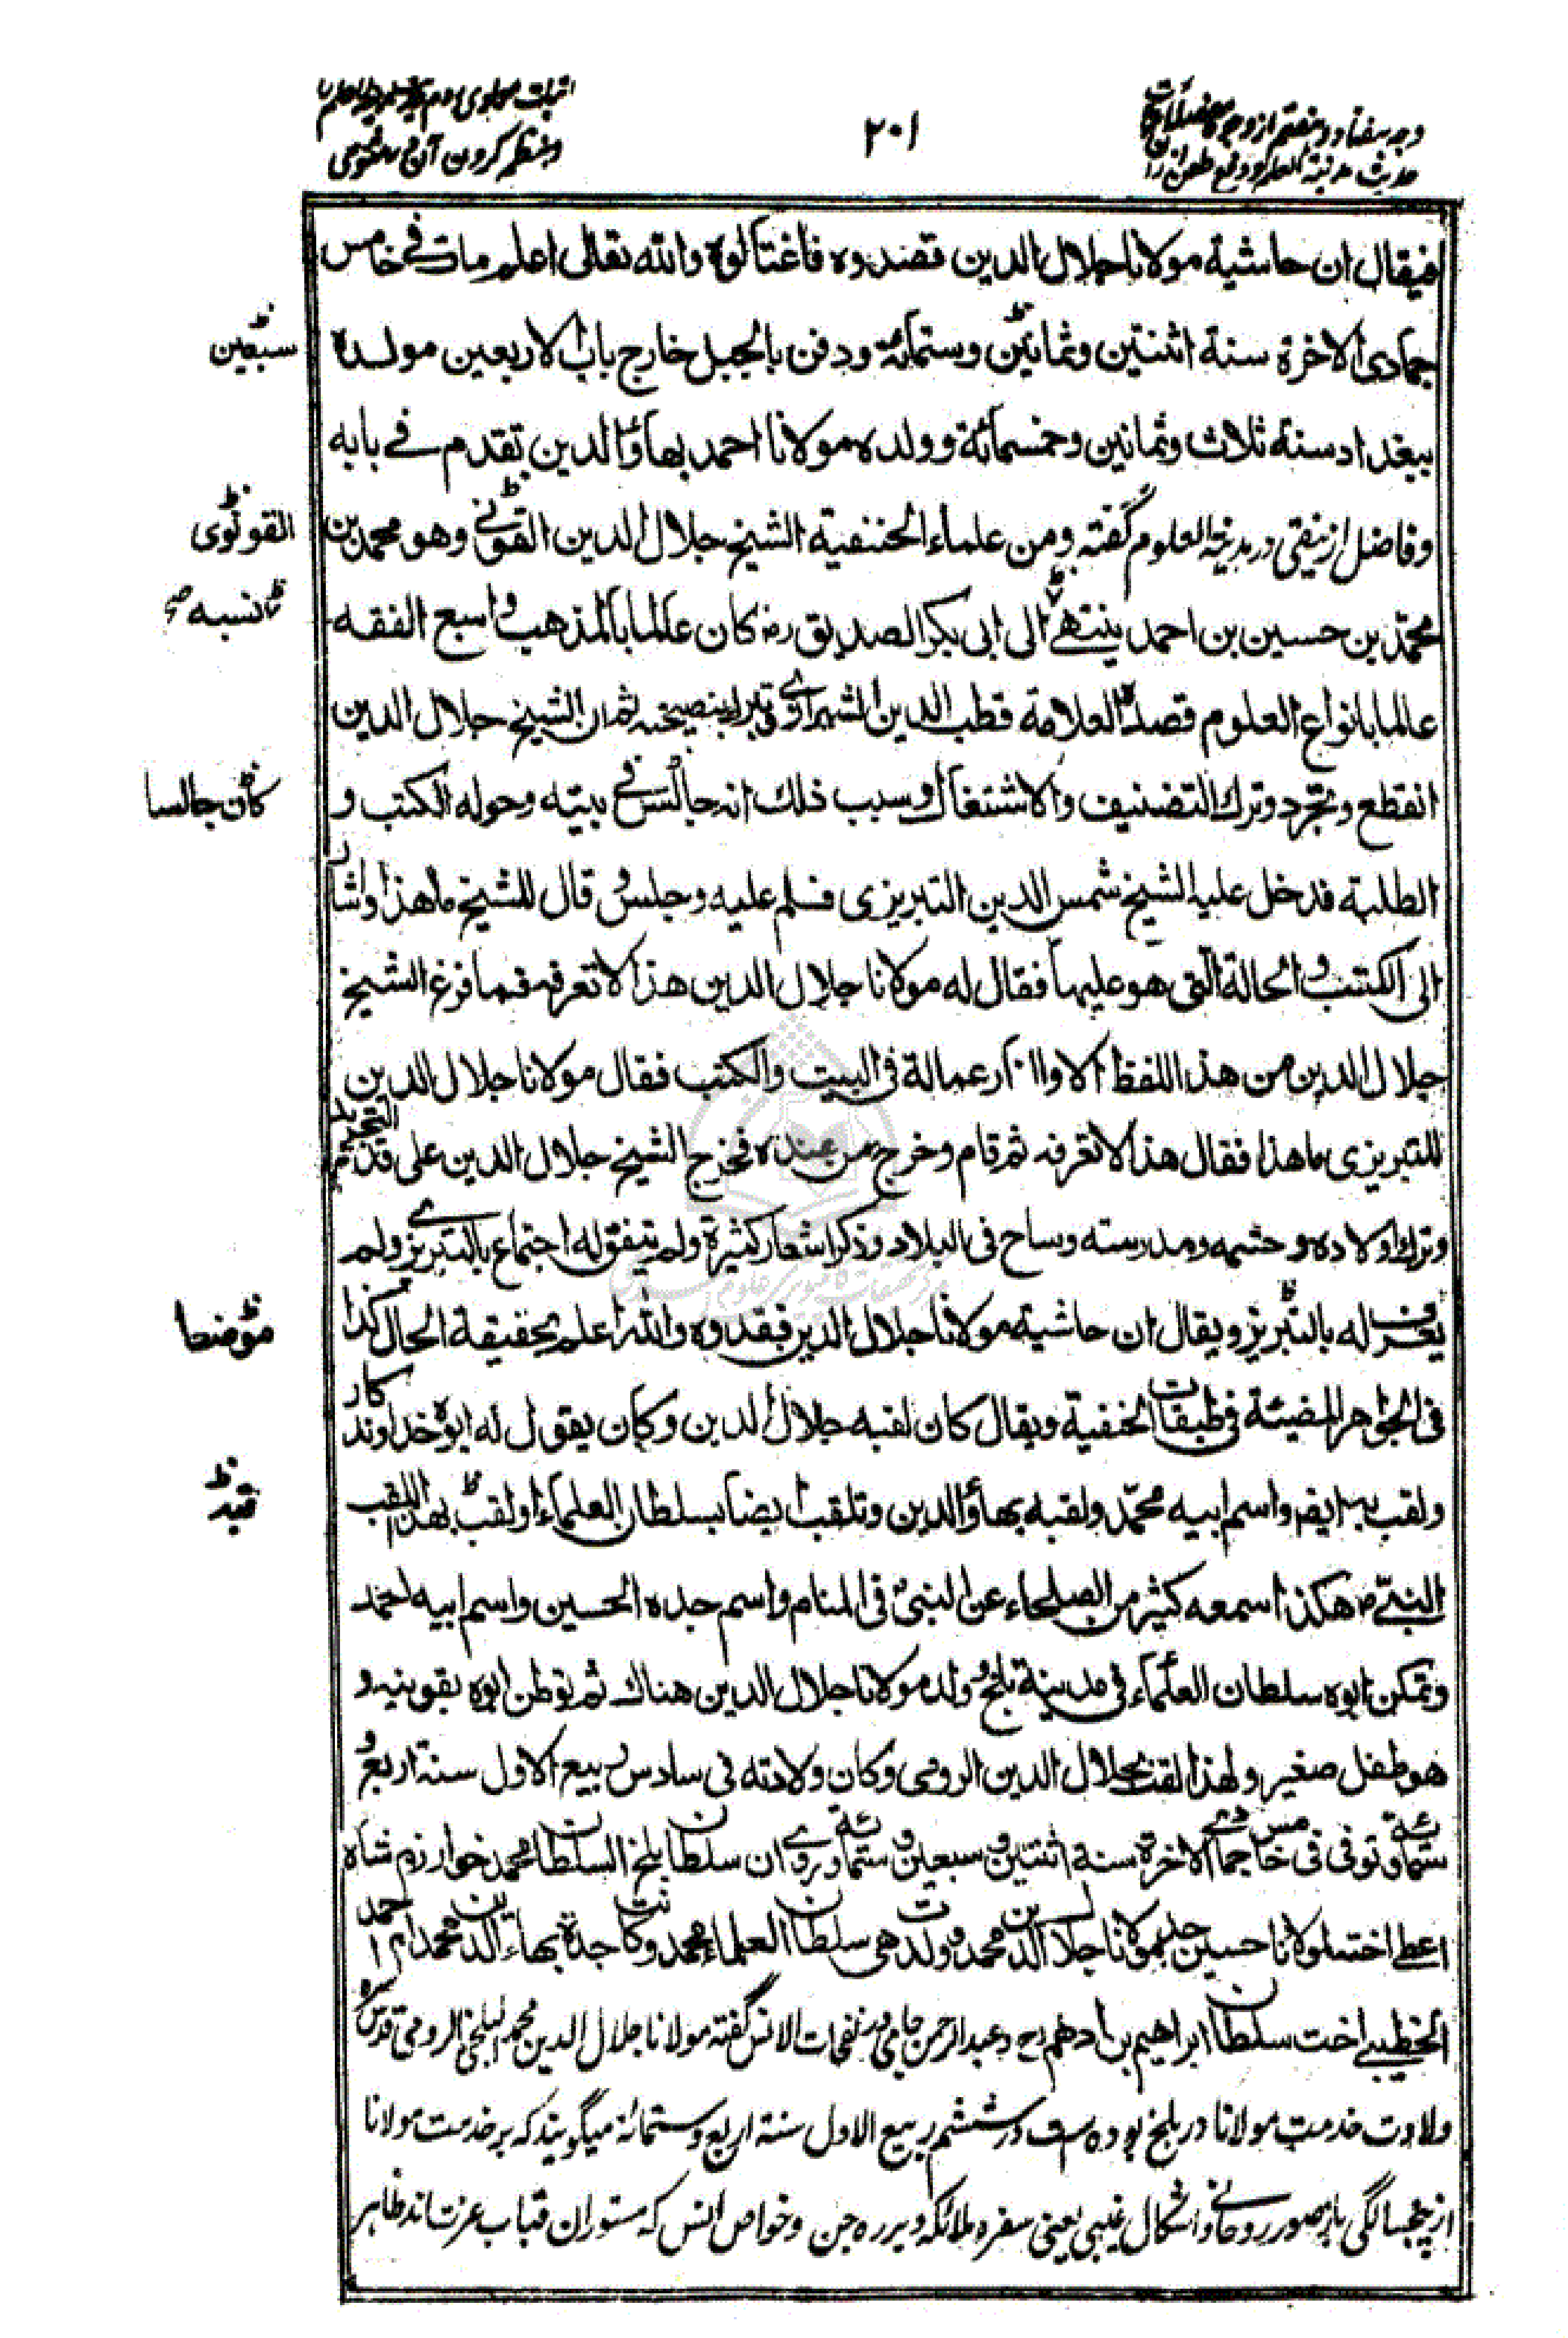 وجه هفتاد و هفتم از وجوه
حديث مدينة العلم و دفع طعن
٢٠١
اثبات مولوى روم
و نظم كردن آن در مثنوى
فيقال ان حاشية مولانا جلال الدين قصدوه فاغتالوه والله تعالى اعلم مات في خامس
جمادى الاخرة سنة اثنتين وثمانين وستمائة ودفن بالجبل خارج باب الاربعين مولده
سبعين
ببغداد سنة ثلاث وثمانين وخمسمائة وولده مولانا احمد بهاؤ الدين تقدم في بابه
وفاضل ازنيقى در مدينة العلوم گفته ومن علماء الحنفية الشيخ جلال الدين القونى وهو محمد بن
القونوى
محمد بن حسين بن احمد ينتهى الى ابى بكر الصديق رض كان عالما بالمذهب واسع الفقه
نسبه صح
عالما بانواع العلوم قصده العلامة قطب الدين الشيرازى ثم ان الشيخ جلال الدين
انقطع وتجرد وترك التصنيف والاشتغال وسبب ذلك انه جالس في بيته وحوله الكتب و
كان جالسا
الطلبة فدخل عليه الشيخ شمس الدين التبريزى فسلم عليه وجلس و قال للشيخ ما هذا واشار
الى الكتب والحالة التى هو عليها فقال له مولانا جلال الدين هذا لا تعرفه فما فرغ الشيخ
جلال الدين من هذا اللفظ الا و النار عمالة فى البيت والكتب فقال مولانا جلال الدين
للتبريزى ما هذا فقال هذا لا تعرفه ثم قام وخرج من عنده فخرج الشيخ جلال الدين على قدم التجريد
وترك اولاده وحشمه ومدرسته وساح فى البلاد وذكر اشعار كثيرة ولم يتفق له اجتماع بالتبريزى ولم
يعرف له بالتبريزى ويقال ان حاشية مولانا جلال الدين فقدوه والله اعلم بحقيقة الحال كذا
موضعا
فى الجواهر المضيئة فى طبقات الحنفية ويقال كان لقبه جلال الدين وكان يقول له ابوه خداوندكار
ولقب به ايضا واسم ابيه محمد ولقبه بهاؤ الدين وتلقب ايضا بسلطان العلماء ولقب بهذا اللقب
النبى ص هكذا سمعه كثير من الصلحاء عن النبى في المنام واسم جده الحسين واسم ابيه احمد
وتمكن ابوه سلطان العلماء فى مدينة بلخ و ولد مولانا جلال الدين هناك ثم توطن ابوه بقونيه و
هو طفل صغير ولهذا لقب بجلال الدين الرومى وكان ولادته فى سادس ربيع الاول سنة اربع و
ستمائة وتوفى فى خامس جمادى الاخرة سنة اثنتين وسبعين وستمائة ويروى ان سلطان بلخ السلطان محمد خوارزم شاه
اعطى اخته لمولانا حسين جد مولانا جلال الدين محمد و ولدت هى سلطان العلماء محمد وكانت جدة بهاء الدين محمد ام احمد
الخطيبى اخت سلطان ابراهيم بن ادهم رح و عبدالرحمن جامى در نفحات الانس گفته مولانا جلال الدين محمد البلخى الرومى قدس سره
ولادت خدمت مولانا در بلخ بوده است در ششم ربيع الاول سنة اربع وستمائة ميگويند كه بر خدمت مولانا
از پنجسالگى باز صور روحانى و اشكال غيبى يعنى سفره ملائكه و برره جن و خواص انس كه مستوران قباب عزت اند ظاهر